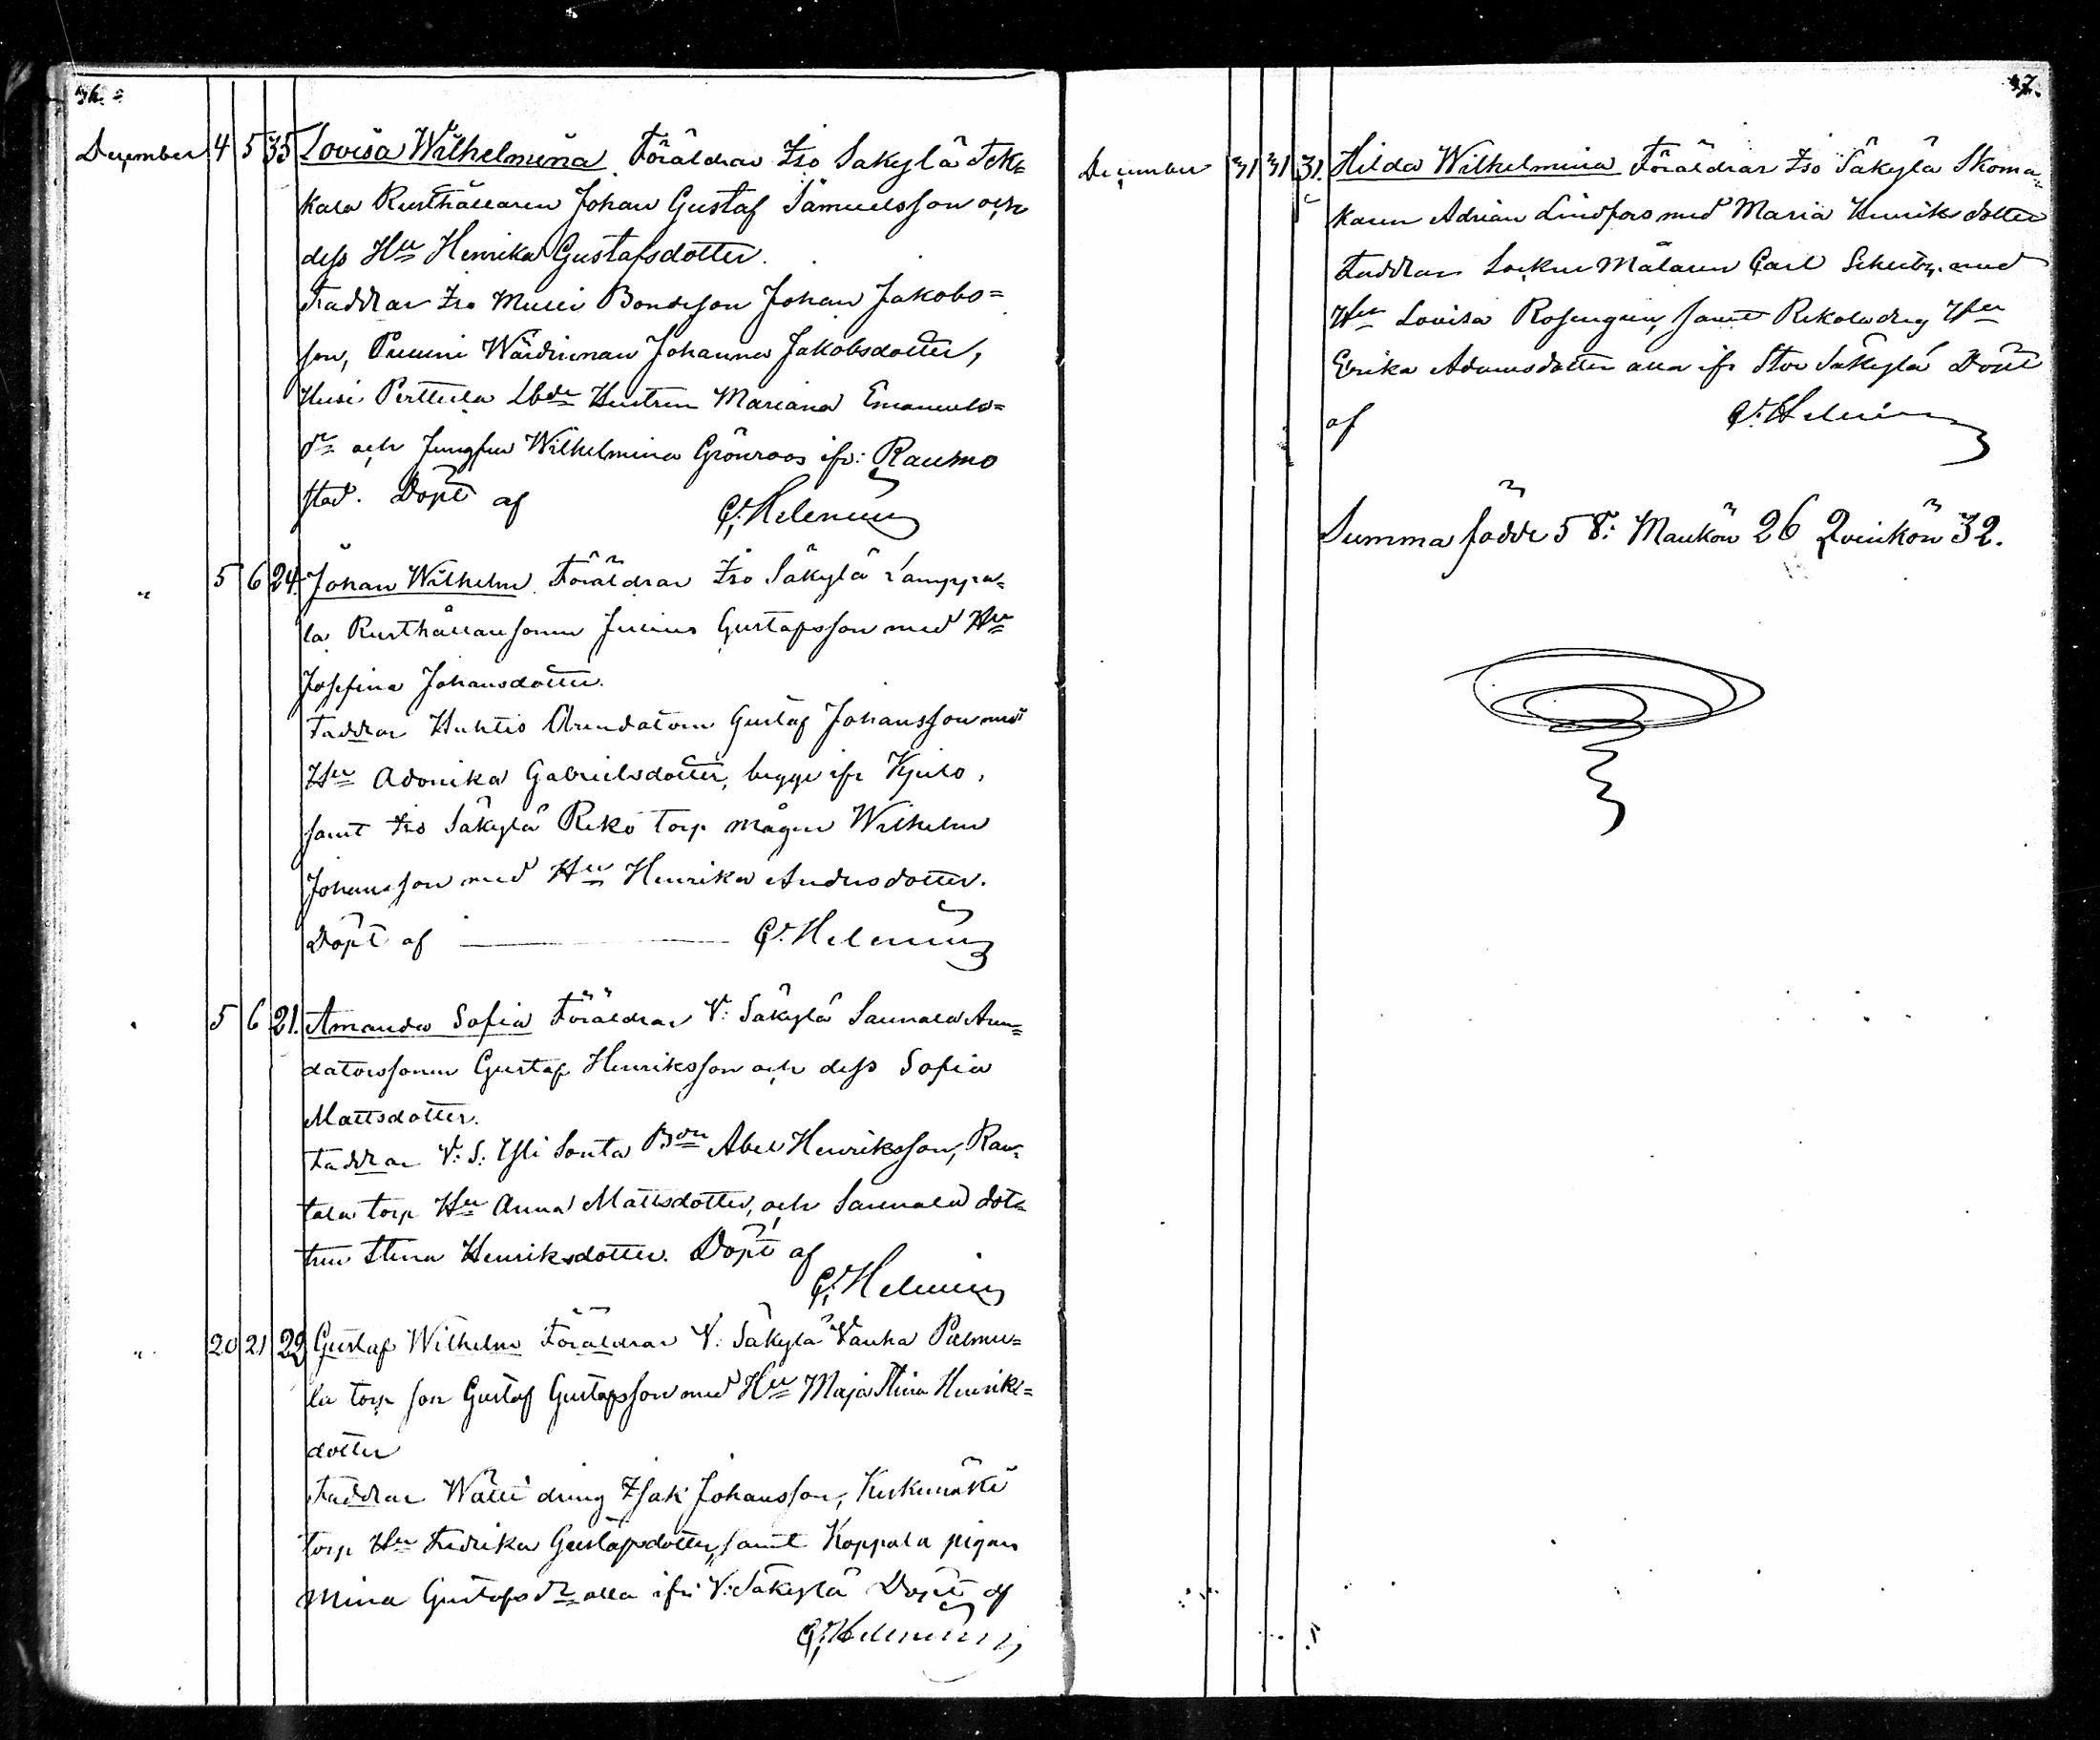 36.
December 4 5 35 Lovisa Wilhelmina. Föräldrar Iso Säkylä Tek=
kala Rusthållaren Johan Gustaf Samuelsson och
dess Hu Henrika Gustafsdotter.
Faddrar Iso Bondeson Johan Jakobs=
son, Wärdinnan Johanna Jakobsdotter,
Husi Perttula Hustrun Mariana Emanuels=
dr och Jungfru Wilhelmina Grönroos ifr: Raumo
stad. Döpt af G. Helenius
" 5 6 24. Johan Wilhelm. Föräldrar Iso Säkylä Lamppa=
la Rusthållarsonen Junius Gustafsson med Hu
Josefina Johansdotter.
Faddrar Huhtis Arendatorn Gustaf Johansson med
Hu Adonika Gabrielsdotter, begge ifr Kjulo,
samt Iso Säkylä Reko torp mågen Wilhelm
Johansson med Hu Henrika Andersdotter.
Döpt af G. Helenius
" 5 6 21. Amanda Sofia Föräldrar V: Säkylä Saunala Aren=
datorssonen Gustaf Henriksson och dess Sofia
Mattsdotter.
Faddrar V: S: Yli Sonta Bdn Abel Henriksson, Rau=
tala torp Hu Anna Mattsdotter, och Saunala dot=
tren Stina Henriksdotter. Döpt af
G. Helenius
" 20 21 22 Gustaf Wilhelm Föräldrar V: Säkylä Vanha Palmu=
la torp son Gustaf Gustafsson med Hu Maja Stina Henriks=
dotter
Faddrar dreng Isak Johansson, Keskimäki
torp Hu Fredrika Gustafsdotter, samt Koppala pigan
Mina Gustafs dr alla ifr V: Säkylä Döpt af
G. Helenius
37.
December 31 31 31. Hilda Wilhelmina Föräldrar Iso Säkylä Skoma=
karen Adrian Lindfors med Maria Henriksdotter
Faddrar Målaren Carl med
Hu Lovisa Rosengren, samt Rekola dreng Hu
Erika Adamsdotter alla ifr Stor Säkylä Döpt
af G. Helenius
Summa födde 58: Mankön 26 Qvinkön 32.